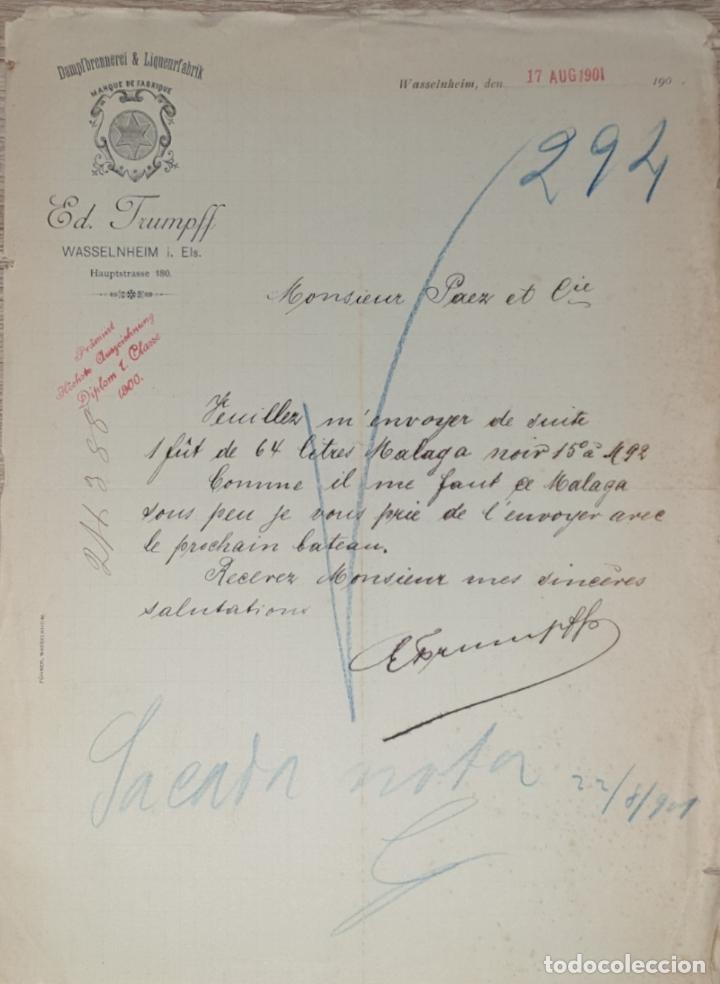 Dampfbrennerei & Liqueurfabrik
MARQUE DE FABRIQUE
Ed. Trumpff
WASSELNHEIM i. Els.
Hauptstrasse 180.
Wasselnheim, den 17 AUG 1901 190
294
Monsieur Paez et Cie
Prämiirt
Höchste Auszeichnung
Diplom 1. Classe
1900.
Veuillez m'envoyer de suite
1 fût de 64 litres Malaga noir 15° à M 92
Comme il me faut ce Malaga
sous peu je vous prie de l'envoyer avec
le prochain bateau.
Recevez Monsieur mes sincères
salutations
ETrumpff
Sacada nota 22/8/901
todocoleccion